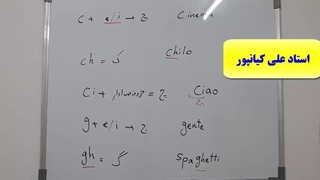 c + e/i → چ Cinema
استاد علی کیانپور
ch = ک chilo
Ci + حرف صدادار = چ Ciao
چ
g + e/i → ج gente
gh = گ spaghetti